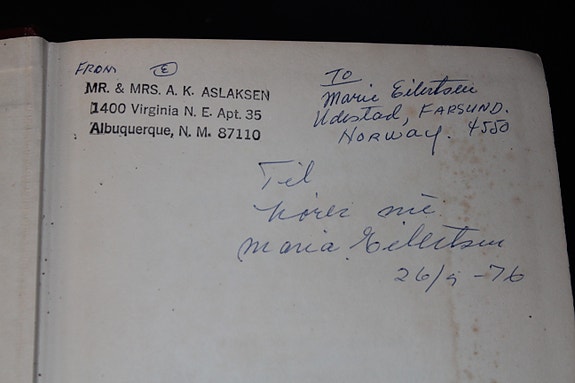 FROM E
MR. & MRS. A. K. ASLAKSEN
1400 Virginia N. E. Apt. 35
Albuquerque, N. M. 87110
TO
Marie Eilertsen
Udestad, FARSUND.
NORWAY. 4550
Til
maria Eilertsen
26/9 - 76